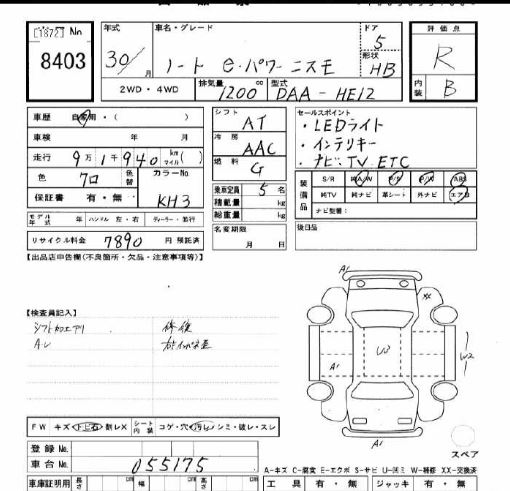 No 8403
年式 30/ 月
車名・グレード ノート e・パワー ニスモ
ドア 5
形状 HB
評価点 R
内装 B
2WD・4WD
排気量 1200 cc
型式 DAA-HE12
車歴 自家用・( )
車検 年 月
走行 9万1千940 km マイル ( )
色 クロ 色替 カラーNo KH3
保証書 有・無
モデル年式 年 ハンドル 左・右 ディーラー・並行
リサイクル料金 7890 円 預託済
シフト AT
冷房 AAC
燃料 G
乗車定員 5 名
積載量 kg
総重量 kg
名変期限 月 日
セールスポイント
・LEDライト
・インテリキー
・ナビ、TV、ETC
装備品 S/R 純A/W P/S P/W ABS
純TV 純ナビ 革シート 外ナビ エアB
ナビ型番:
後日品
【出品店申告欄(不良箇所・欠品・注意事項等)】
【検査員記入】
シフト加工アリ 修復
A、U
A1 XX
U3 W2
A1
A1
FW キズ・トビ石・割レX シート内装 コゲ・穴・汚レ・シミ・破レ・スレ
登録No.
車台No. 055175
スペア
A-キズ C-腐食 E-エクボ S-サビ U-凹ミ W-補修 XX-交換済
車庫証明用 長さ cm 幅 cm 高さ cm
工具 有・無 ジャッキ 有・無